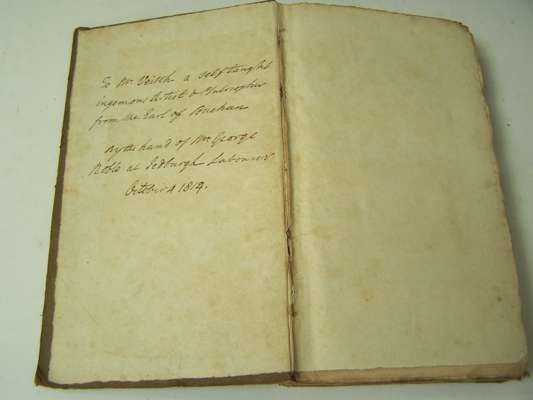 To Mr Veitch a self taught
ingenious Artist & Philosopher
from the Earl of Buchan
By the hand of Mr George
Noble at Jedburgh Labourer
October 4 1814.